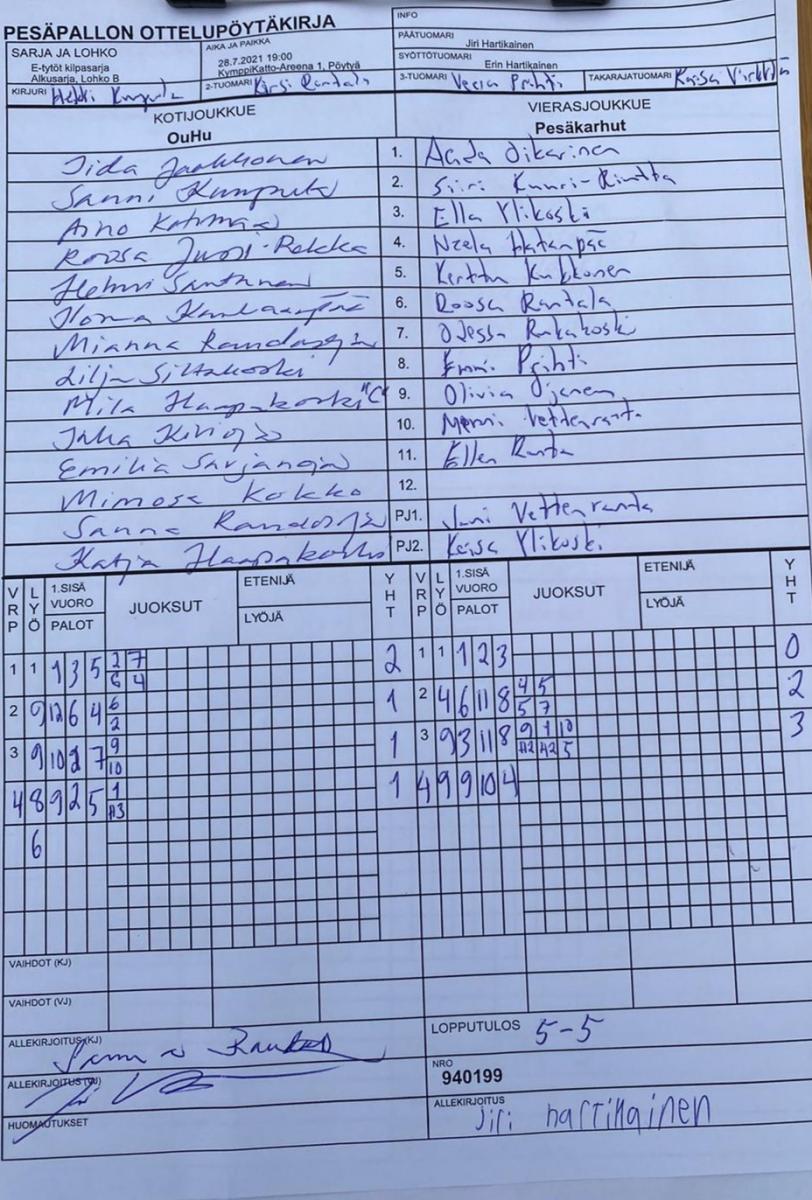 PESÄPALLON OTTELUPÖYTÄKIRJA
INFO
SARJA JA LOHKO
E-tytöt kilpasarja
Alkusarja, Lohko B
AIKA JA PAIKKA
28.7.2021 19:00
KymppiKatto-Areena 1, Pöytyä
PÄÄTUOMARI
Jiri Hartikainen
SYÖTTÖTUOMARI
Erin Hartikainen
KIRJURI
2-TUOMARI Kirsi Rantala
3-TUOMARI Veera Prihti
TAKARAJATUOMARI Kaisa
KOTIJOUKKUE
OuHu
VIERASJOUKKUE
Pesäkarhut
Iida Jaakkonen 1. Aada Oikarinen
Sanni 2. Siiri
Aino 3. Ella Ylikoski
Roosa Jussi-Pekka 4. Neela Hatanpää
Helmi Santanen 5. Kerttu Kukkonen
6. Roosa Rantala
Mianna Randasoja 7.
Lilja Siltakoski 8. Emmi Prihti
Mila Haapakoski "C" 9. Olivia Ojanen
10. Vettenranta
Emilia Sarjanoja 11. Ellen Ranta
Mimosa Kokko 12.
Sanna Randasoja PJ1. Jani Vettenranta
Katja Haapakoski PJ2. Kaisa Ylikoski
VRP LYÖ 1.SISÄ VUORO PALOT JUOKSUT ETENIJÄ LYÖJÄ YHT VRP LYÖ 1.SISÄ VUORO PALOT JUOKSUT ETENIJÄ LYÖJÄ YHT
1 1 1 3 5 2 7 2 1 1 1 2 3 0
6 4
2 9 12 6 4 6 1 2 4 6 11 8 4 5 2
2 5 7
3 9 10 2 7 9 1 3 9 3 11 8 9 1 10 3
10 H2 H2 5
4 8 9 2 5 1 1 4 9 9 10 4
H3
6
VAIHDOT (KJ)
VAIHDOT (VJ)
ALLEKIRJOITUS (KJ)
LOPPUTULOS 5-5
ALLEKIRJOITUS (VJ)
NRO
940199
HUOMAUTUKSET
ALLEKIRJOITUS
Jiri hartikainen